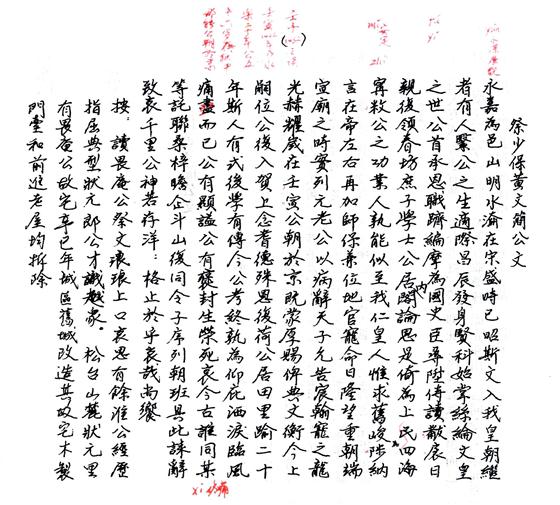 祭少保黄文簡公文
永嘉為邑山明水渝在宋盛時已昭斯文入我皇朝継
者有人繄公之生適際昌辰發身賢科始掌絲綸文皇
之世公首承恩職躋編摩為國史臣尋陞侍讀猷宸日
親後領春坊庶子學士公居内閣論思是倚為上民四海
寗救公之功業人孰能似至我仁皇人惟求舊峻陟納
言在帝左右再加師保兼位地官寵命日隆望重朝端
宣廟之時實列元老公以病辭天子允告宸翰寵之龍
光赫耀歲在壬寅公朝於京既蒙厚賜俾典文衡今上
嗣位公後入賀上念耆德殊恩後荷公居田里踰二十
年斯人有式後學有傳今公考終孰為仰庇洒淚臨風
痛盡而已公有顕謚公有褒封生榮死哀今古誰同某
等託聯桑梓瞻企斗山後同令子席列朝班具此誄辭
致哀千里公神若存洋：格止於乎哀哉尚饗
按：讀畏庵公祭文琅琅上口哀思有餘淮公經歷
指屈典型狀元郎公才識趑家。松台山麓狀元里
有畏庵公故宅辛巳年城區舊城改造其故宅木製
門臺和前進老屋均拆除